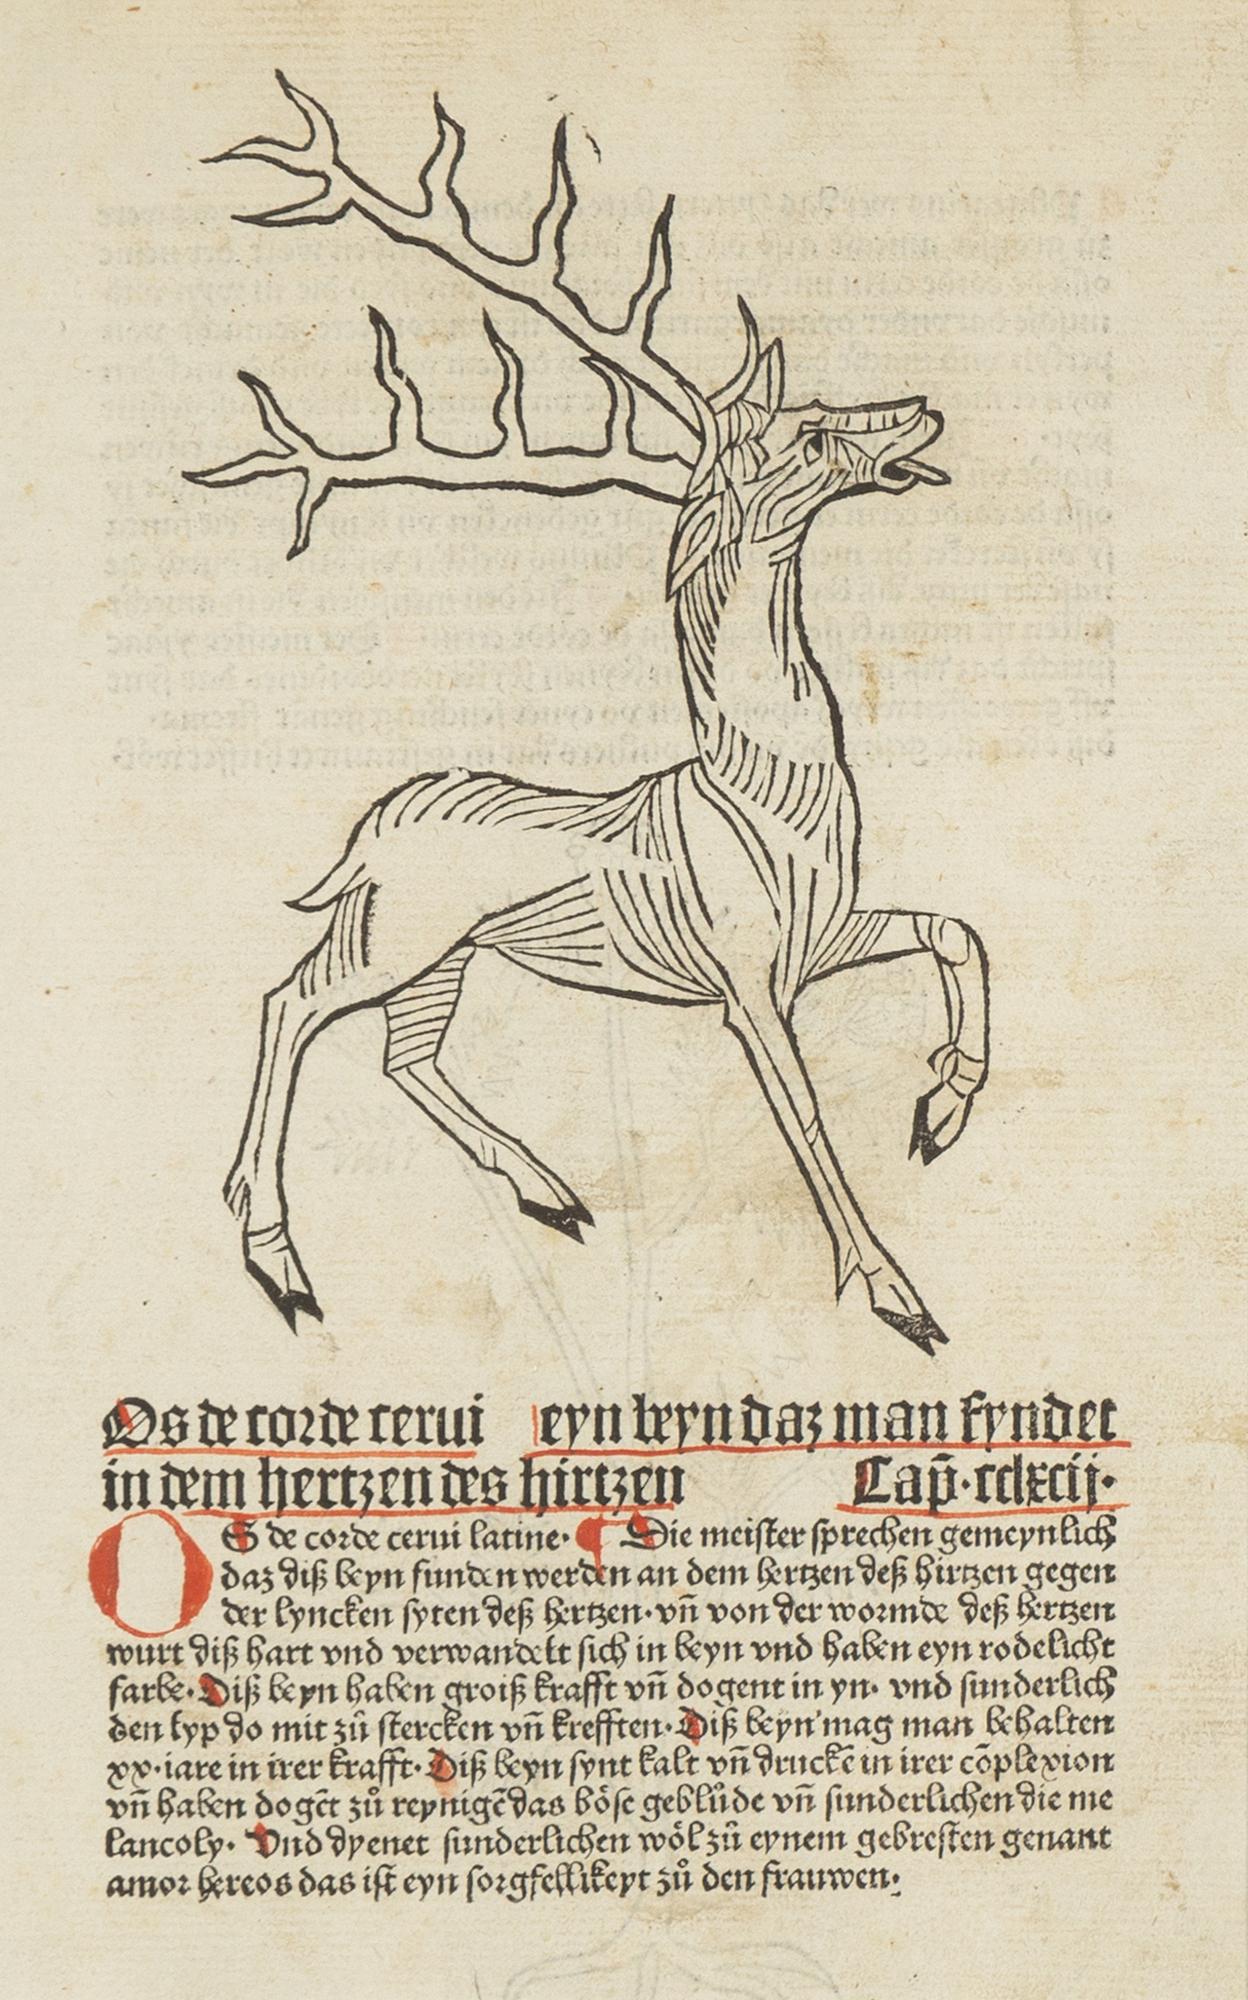 Os de corde cerui eyn beyn daz man fyndet
in dem hertzen des hirtzen Cap̄·cclxcij·
OS de corde cerui latine· ¶ Die meister sprechen gemeynlich
daz diß beyn funden werden an dem hertzen deß hirtzen gegen
der lyncken syten deß hertzen· vn̄ von der wormde deß hertzen
wurt diß hart vnd verwandelt sich in beyn vnd haben eyn rodelicht
farbe· Diß beyn haben groiß krafft vn̄ dogent in yn· vnd sunderlich
den lyp do mit zů stercken vn̄ krefften· Diß beyn mag man behalten
xx·iare in irer krafft· Diß beyn synt kalt vn̄ druckē in irer cōplexion
vn̄ haben dogēt zů reynigē das böse geblůde vn̄ sunderlichen die me
lancoly· Vnd dyenet sunderlichen wöl zů eynem gebresten genant
amor hereos das ist eyn sorgfellikeyt zů den frauwen·